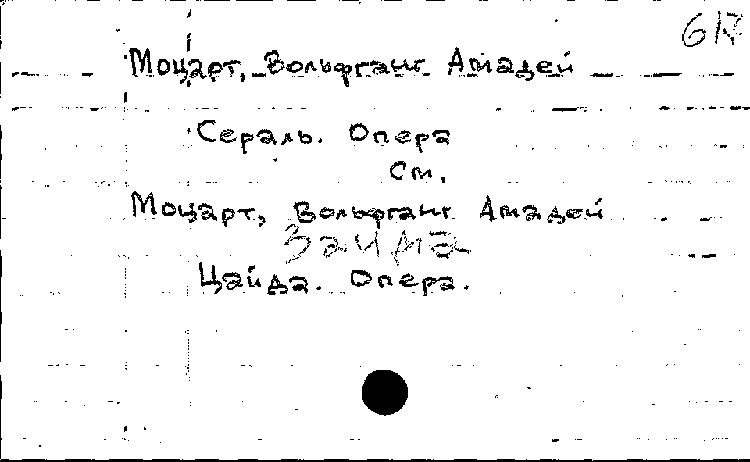 Моцарт, Вольфганг Амадей
Сераль. Опера
См.
Моцарт, Вольфганг Амадей
Заида
Цайда. Опера.